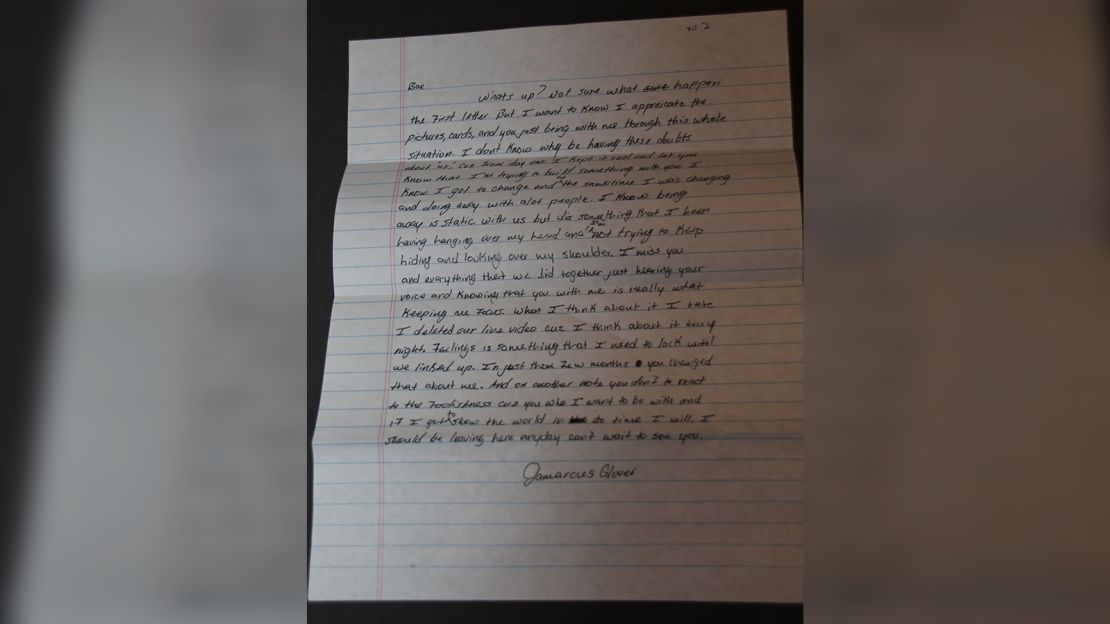 Bae
Whats up? Not sure what sure happen
the first letter But I want to know I appreicate the
pictures, cards, and you just being with me through this whole
situation. I don't know why be having these doubts
about "us," cuz from day one I kept it real and let you
know that I'm trying to build something with you I
know I got to change and at the sametime I was changing
and doing away with alot people. I know being
away is static with us but dis something that I been
having hanging over my head and I'm not trying to keep
hiding and looking over my shoulder. I miss you
and everything that we did together just hearing your
voice and knowing that you with me is really what
keeping me focus. When I think about it I hate
I deleted our live video cuz I think about it every
night. Feelings is something that I used to lack until
we linked up. In just them few months you changed
that about me. And on another note you don't to react
to the foolishness cuz you who I want to be with and
if I got to show the world in do time I will. I
should be leaving here anyday can't wait to see you.
Jamarcus Glover